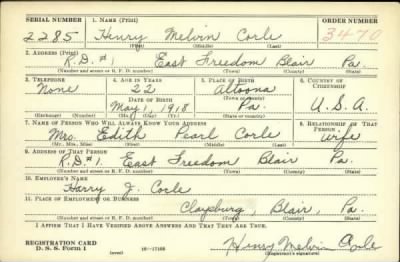 SERIAL NUMBER 1. NAME (Print) ORDER NUMBER
2285 Henry Melvin Corle 3470
(First) (Middle) (Last)
2. ADDRESS (Print)
R.D. #1 East Freedom Blair Pa.
(Number and street or R. F. D. number) (Town) (County) (State)
3. TELEPHONE 4. AGE IN YEARS 5. PLACE OF BIRTH 6. COUNTRY OF CITIZENSHIP
None 22 Altoona
DATE OF BIRTH (Town or county)
May 1, 1918 Pa. U.S.A.
(Exchange) (Number) (Mo.) (Day) (Yr.) (State or country)
7. NAME OF PERSON WHO WILL ALWAYS KNOW YOUR ADDRESS 8. RELATIONSHIP OF THAT PERSON
Mrs. Edith Pearl Corle Wife
(Mr., Mrs., Miss) (First) (Middle) (Last)
9. ADDRESS OF THAT PERSON
R.D. #1. East Freedom Blair Pa.
(Number and street or R. F. D. number) (Town) (County) (State)
10. EMPLOYER'S NAME
Harry J. Cocle
11. PLACE OF EMPLOYMENT OR BUSINESS
Claysburg, Blair, Pa.
(Number and street or R. F. D. number) (Town) (County) (State)
I AFFIRM THAT I HAVE VERIFIED ABOVE ANSWERS AND THAT THEY ARE TRUE.
REGISTRATION CARD
D. S. S. Form 1 (over) 16—17105 Henry Melvin Corle
(Registrant's signature)